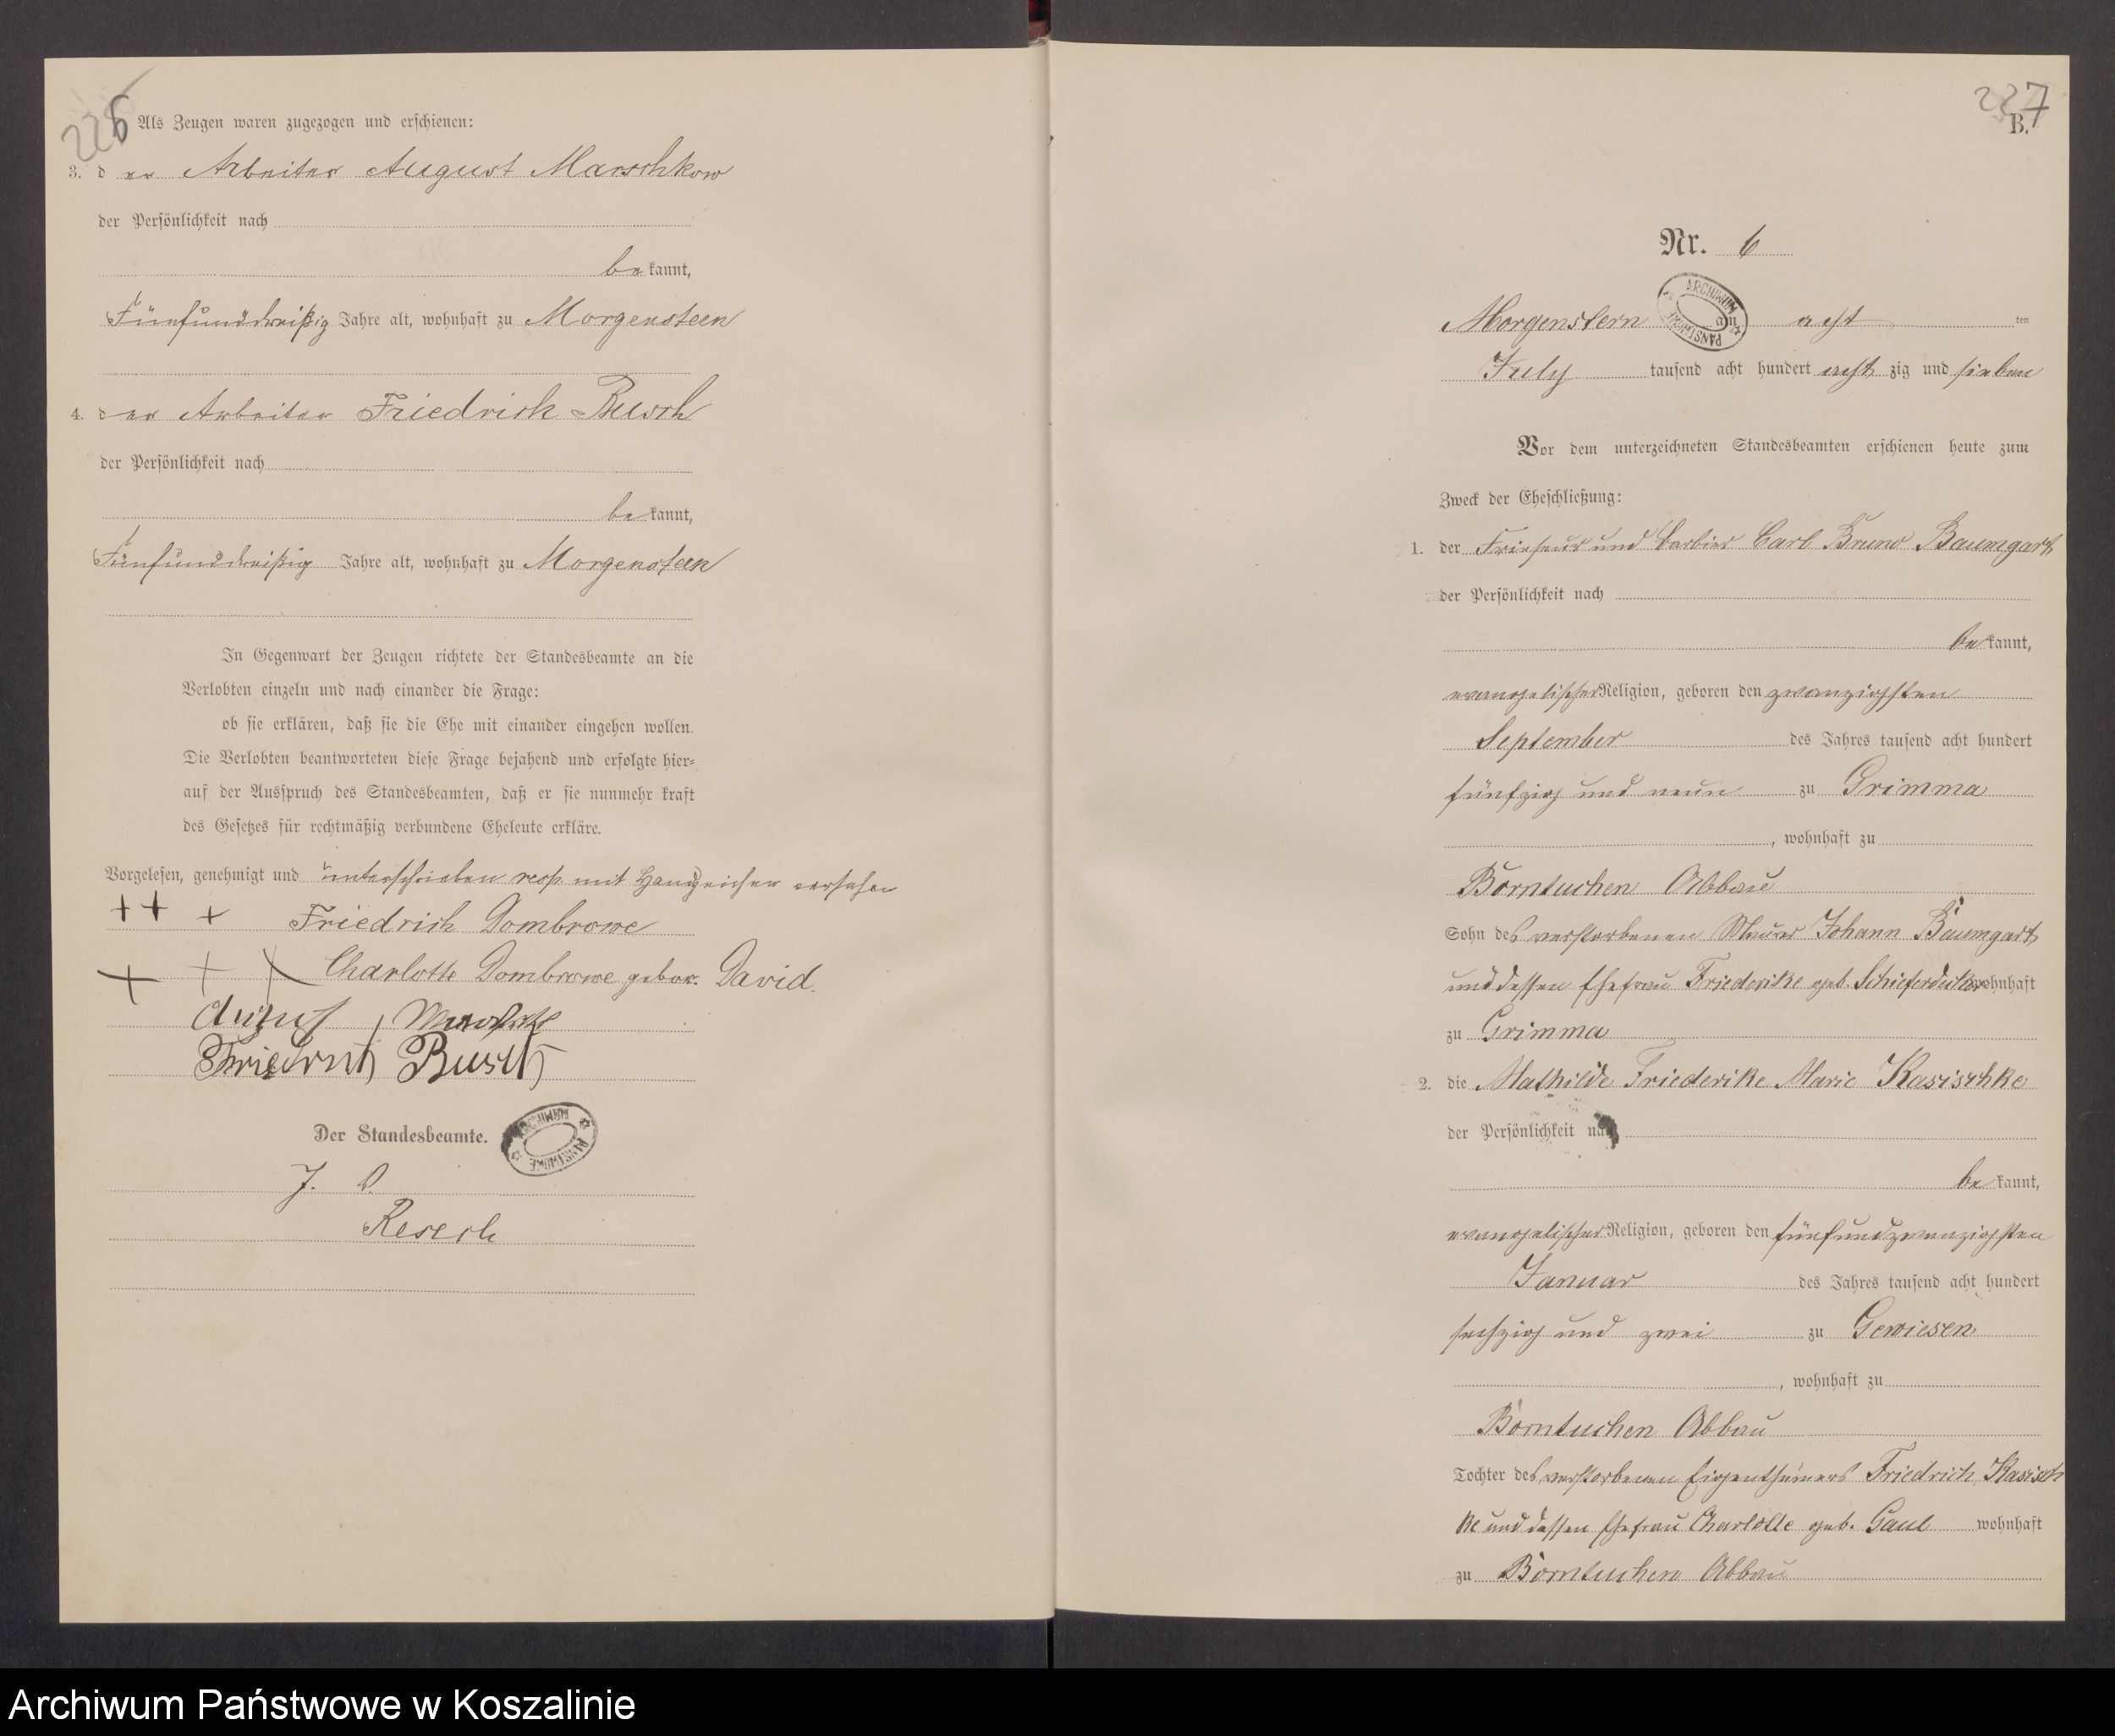 226
Als Zeugen waren zugezogen und erschienen:
3. der Arbeiter August Marschkow
der Persönlichkeit nach
bekannt,
Fünfunddreißig Jahre alt, wohnhaft zu Morgenstern
4. der Arbeiter Friedrich Busch
der Persönlichkeit nach
bekannt,
Fünfunddreißig Jahre alt, wohnhaft zu Morgenstern
In Gegenwart der Zeugen richtete der Standesbeamte an die
Verlobten einzeln und nach einander die Frage:
ob sie erklären, daß sie die Ehe mit einander eingehen wollen.
Die Verlobten beantworteten diese Frage bejahend und erfolgte hier-
auf der Ausspruch des Standesbeamten, daß er sie nunmehr kraft
des Gesetzes für rechtmäßig verbundene Eheleute erkläre.
Vorgelesen, genehmigt und unterschrieben resp. mit Handzeichen versehen
+++ Friedrich Dombrowe
+++ Charlotte Dombrowe gebor. David.
August
Friedrich Busch
Der Standesbeamte.
J. V.
Resech
227
B.
Nr. 6
Morgenstern am acht ten
July tausend acht hundert acht zig und sieben
Vor dem unterzeichneten Standesbeamten erschienen heute zum
Zweck der Eheschließung:
1. der Friseur und Barbier Carl Bruno Baumgart
der Persönlichkeit nach
bekannt,
evangelischer Religion, geboren den zwanzigsten
September des Jahres tausend acht hundert
fünfzig und neun zu Grimma
, wohnhaft zu
Borntuchen Abbau
Sohn des verstorbenen Maurer Johann Baumgart
und dessen Ehefrau Friederike geb. Schieferdecker wohnhaft
zu Grimma
2. die Mathilde Friederike Marie Kasischke
der Persönlichkeit nach
bekannt,
evangelischer Religion, geboren den fünfundzwanzigsten
Januar des Jahres tausend acht hundert
sechzig und zwei zu Gewiesen
, wohnhaft zu
Borntuchen Abbau
Tochter des verstorbenen Eigenthümers Friedrich Kasisch
ke und dessen Ehefrau Charlotte geb. Gaul wohnhaft
zu Borntuchen Abbau
Archiwum Państwowe w Koszalinie